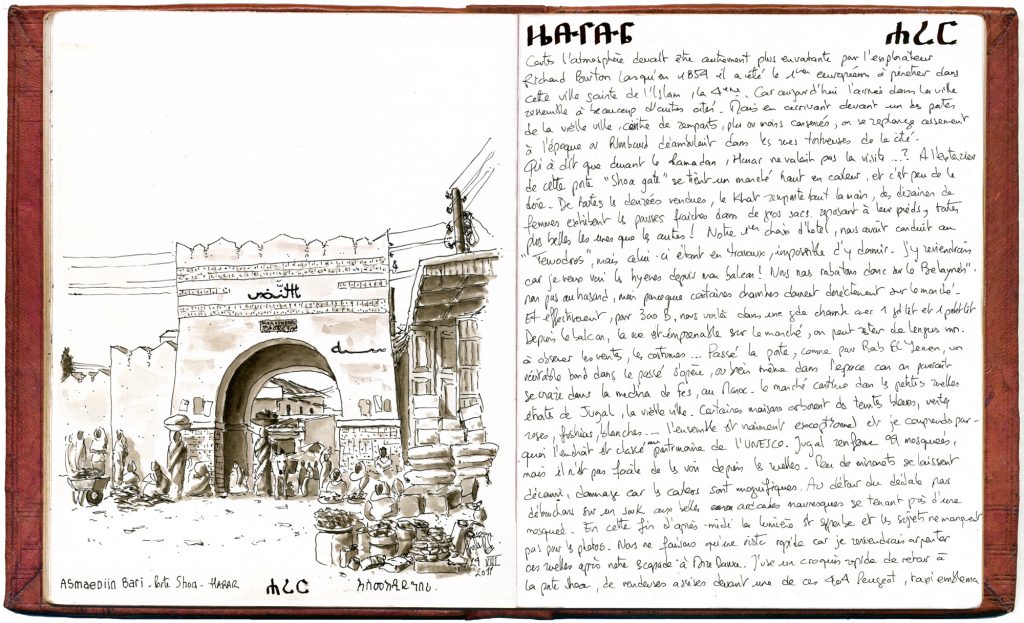 ሐረር
Certes l'atmosphère devait être autrement plus envoutante par l'explorateur
Richard Burton lorsqu'en 1854 il a été le 1er européen à pénétrer dans
cette ville sainte de l'Islam, la 4ème. Car aujourd'hui l'arrivée dans la ville
ressemble à beaucoup d'autres cités. Mais en arrivant devant un des portes
de la vieille ville, ceinte de remparts, plus ou moins conservés, on se replonge aisément
à l'époque où Rimbaud déambulait dans les rues tortueuses de la cité.
Qui a dit que durant le Ramadan, Harar ne valait pas la visite...? A l'extérieur
de cette porte "Shoa gate" se tient un marché haut en couleur, et c'est peu de le
dire. De toutes les denrées vendues, le Khat remporte haut la main, des dizaines de
femmes exhibent les pousses fraîches dans de gros sacs reposant à leur pieds, toutes
plus belles les unes que les autres! Notre 1er choix d'hôtel, nous avait conduit au
"Tewodros, mais celui-ci étant en travaux, impossible d'y dormir. J'y reviendrais
car je veux voir les hyènes depuis mon balcon! Nous nous rabattons donc sur le
non pas au hasard, mais parceque certaines chambres donnent directement sur le marché.
Et effectivement, pour 300 B, nous voilà dans une gde chambre avec 1 gd lit et 1 petit lit
Depuis le balcon, la vue est imprenable sur le marché, on peut rester de longues mn.
à observer les ventes, les costumes... Passé la porte, comme pour Bab El Yemen, un
véritable bond dans le passé s'opère, ou bien même dans l'espace car on pourrait
se croire dans la médina de Fès, au Maroc. Le marché continue dans les petites ruelles
étroites de Jugal, la vieille ville. Certaines maisons arborent des teintes bleues, vertes
roses, fushias, blanches... l'ensemble est vraiment exceptionnel et je comprends pour-
quoi l'endroit est classé au patrimoine de l'UNESCO. Jugal renferme 99 mosquées,
mais il n'est pas facile de les voir depuis les ruelles. Peu de minarets se laissent
découvrir, dommage car les couleurs sont magnifiques. Au détour du dédale nous
débouchons sur un souk aux belles arcades mauresques se tenant près d'une
mosquée. En cette fin d'après-midi la lumière est superbe et les sujets ne manquent
pas pour les photos. Nous ne faisons qu'une visite rapide car je reviendrais arpenter
ces ruelles après notre escapade à Dire Dawa. J'use un croquis rapide de retour à
la porte Shoa, de vendeuses assises devant une de ces 404 Peugeot, taxi emblema
VIII
2011
Asmaediin Bari - Porte Shoa - HARAR
ሐረር